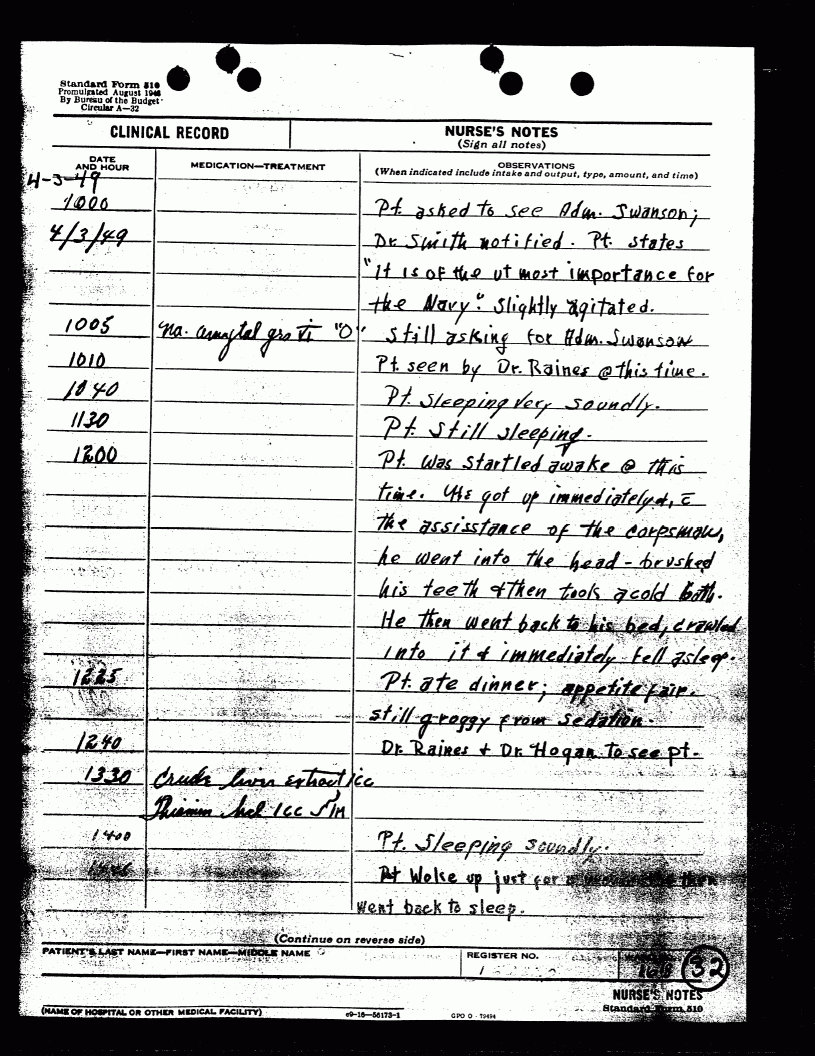 Standard Form 510
Promulgated August 1946
By Bureau of the Budget
Circular A—32
CLINICAL RECORD
NURSE'S NOTES
(Sign all notes)
DATE AND HOUR
MEDICATION—TREATMENT
OBSERVATIONS
(When indicated include intake and output, type, amount, and time)
4-3-49
1000 Pt. asked to see Adm. Swanson;
4/3/49 Dr. Smith notified. Pt. states
"It is of the ut most importance for
the Navy". Slightly agitated.
1005 Na. amytal grs vi "O" Still asking for Adm. Swanson
1010 Pt. seen by Dr. Raines @ this time.
1040 Pt. sleeping very soundly.
1130 Pt. still sleeping.
1200 Pt. was startled awake @ this
time. He got up immediately &, c̄
the assisstance of the corpsman,
he went into the head - brushed
his teeth & then took a cold bath.
He then went back to his bed, crawled
into it & immediately fell asleep.
1225 Pt. ate dinner; appetite fair.
still groggy from sedation.
1240 Dr. Raines & Dr. Hogan to see pt.
1330 Crude liver extract 1cc
Thiamin hcl 1cc IM
1400 Pt. Sleeping soundly.
Pt Woke up just for a then
went back to sleep.
(Continue on reverse side)
PATIENT'S LAST NAME—FIRST NAME—MIDDLE NAME
REGISTER NO.
32
NURSE'S NOTES
Standard Form 510
(NAME OF HOSPITAL OR OTHER MEDICAL FACILITY)
c9-16—56173-1
GPO O - 79494